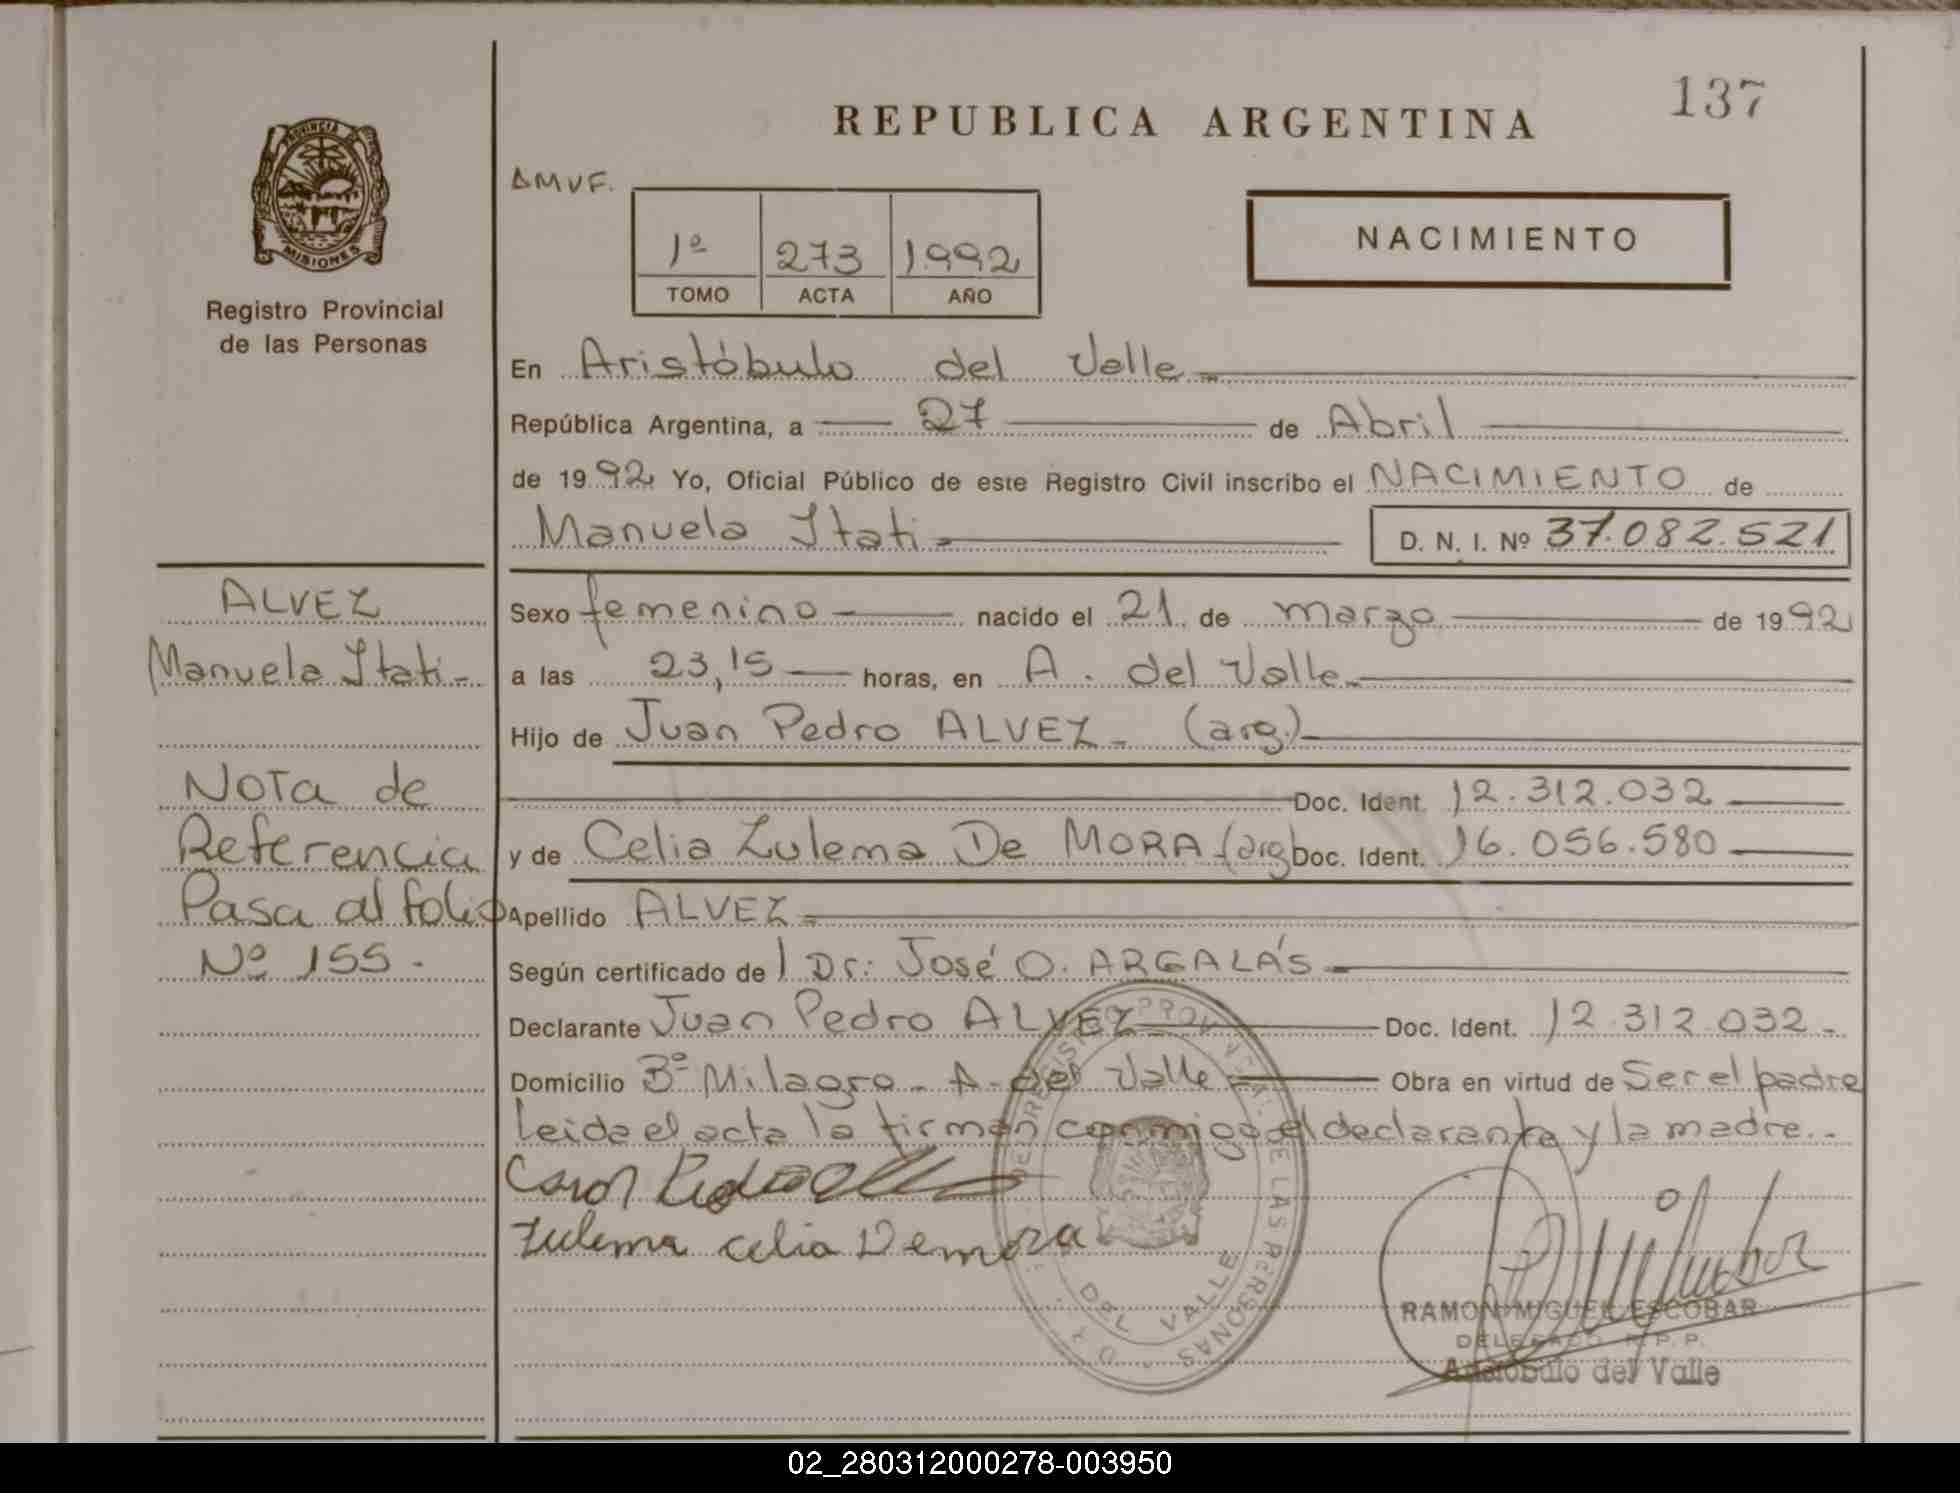 137
REPUBLICA ARGENTINA
PROVINCIA DE
MISIONES
Registro Provincial
de las Personas
AMVF.
1º 273 1992
TOMO ACTA AÑO
NACIMIENTO
En Aristóbulo del Valle
República Argentina, a 27 de Abril
de 1992 Yo, Oficial Público de este Registro Civil inscribo el NACIMIENTO de
Manuela Itati D. N. I. Nº 37.082.521
ALVEZ
Manuela Itati
Nota de
Referencia
Pasa al folio
Nº 155.
Sexo femenino nacido el 21 de marzo de 1992
a las 23,15 horas, en A. del Valle
Hijo de Juan Pedro ALVEZ (arg.)
Doc. Ident. 12.312.032
y de Celia Zulema De MORA (arg Doc. Ident. 16.056.580
Apellido ALVEZ
Según certificado de Dr: José O. ARGALÁS
Declarante Juan Pedro ALVEZ Doc. Ident. 12.312.032
Domicilio Bº Milagro - A. del Valle Obra en virtud de Ser el padre
Leida el acta la firman conmigo el declarante y la madre.
Zulema Celia Demora
DEL VALLE
RAMON MIGUEL ESCOBAR
DELEGADO R.P.P.
Aristóbulo del Valle
02_280312000278-003950